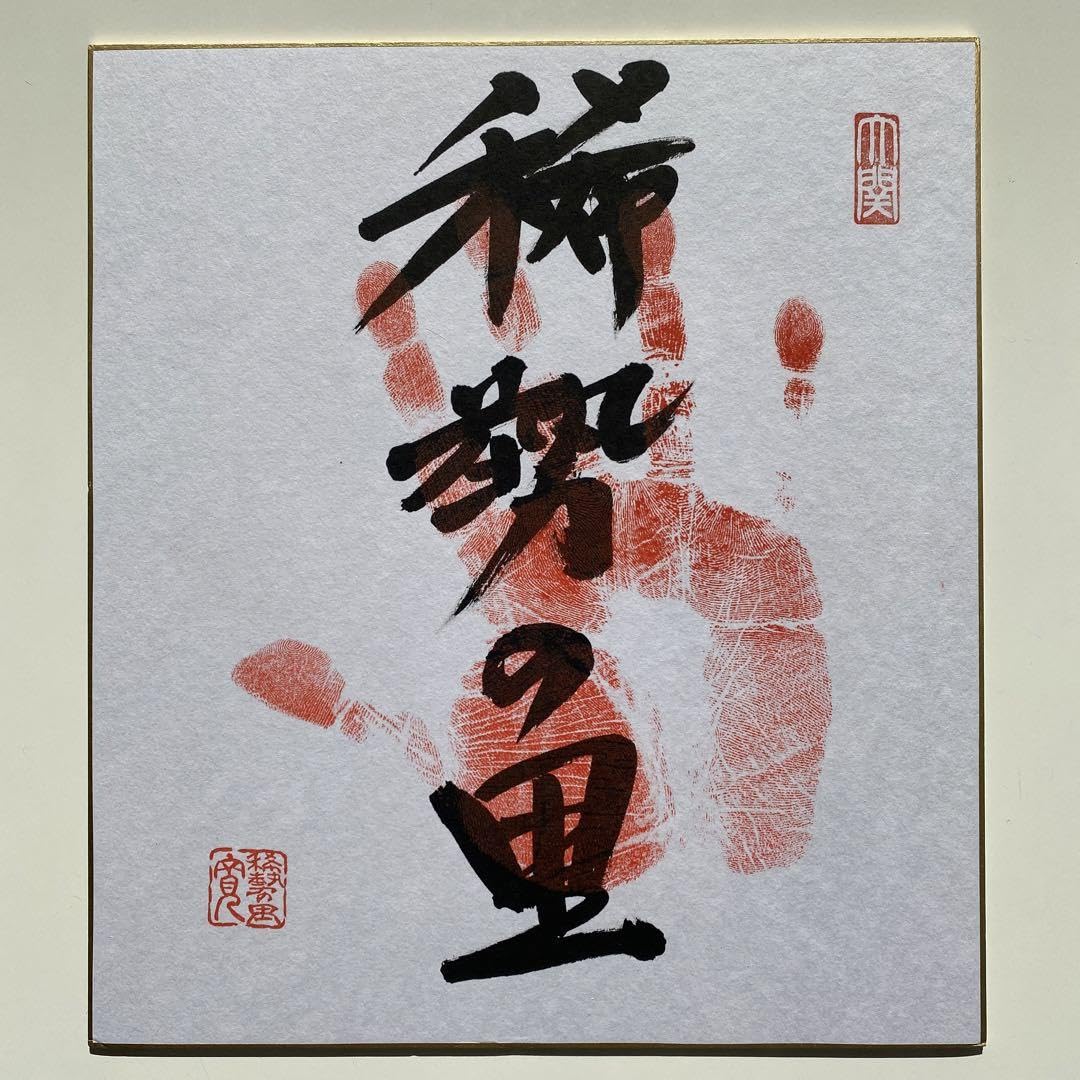 大関
稀勢の里
稀勢の里
寛